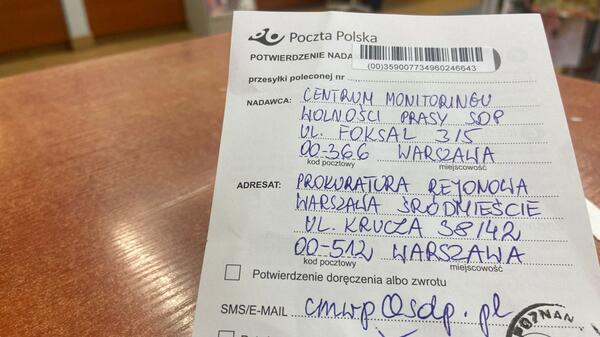 Poczta Polska
POTWIERDZENIE NADA
(00)359007734960246643
przesyłki poleconej nr
NADAWCA: CENTRUM MONITORINGU
WOLNOŚCI PRASY SDP
UL. FOKSAL 3/5
00-366 WARSZAWA
kod pocztowy miejscowość
ADRESAT: PROKURATURA REJONOWA
WARSZAWA ŚRÓDMIEŚCIE
UL. KRUCZA 38/42
00-512 WARSZAWA
kod pocztowy miejscowość
Potwierdzenie doręczenia albo zwrotu
SMS/E-MAIL cmwp@sdp.pl
POZNAŃ